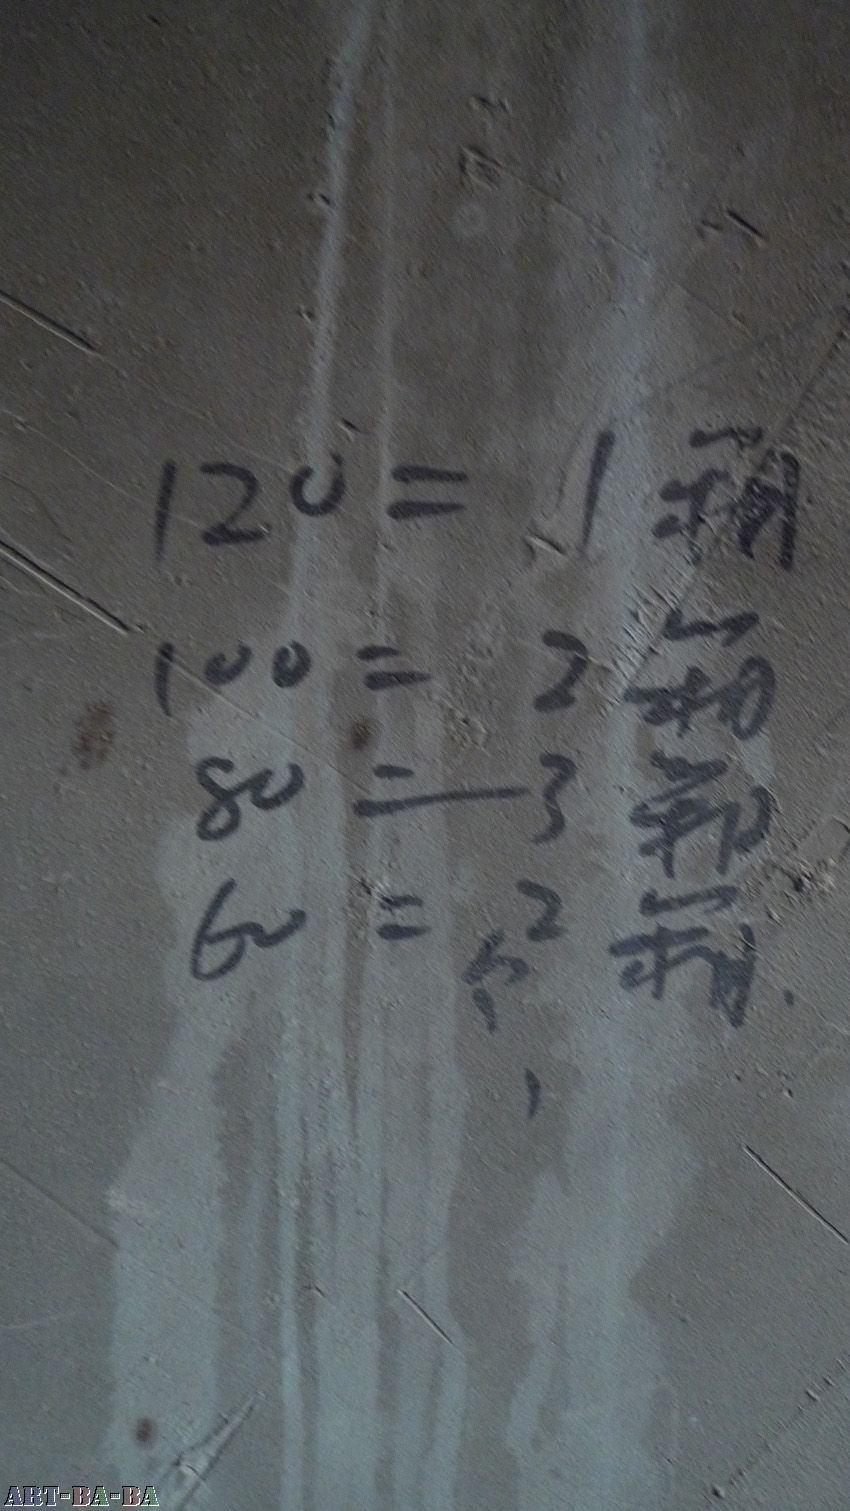 120 = 1 箱
100 = 2 箱
80 = 3 箱
60 = 2 箱.
ART-BA-BA